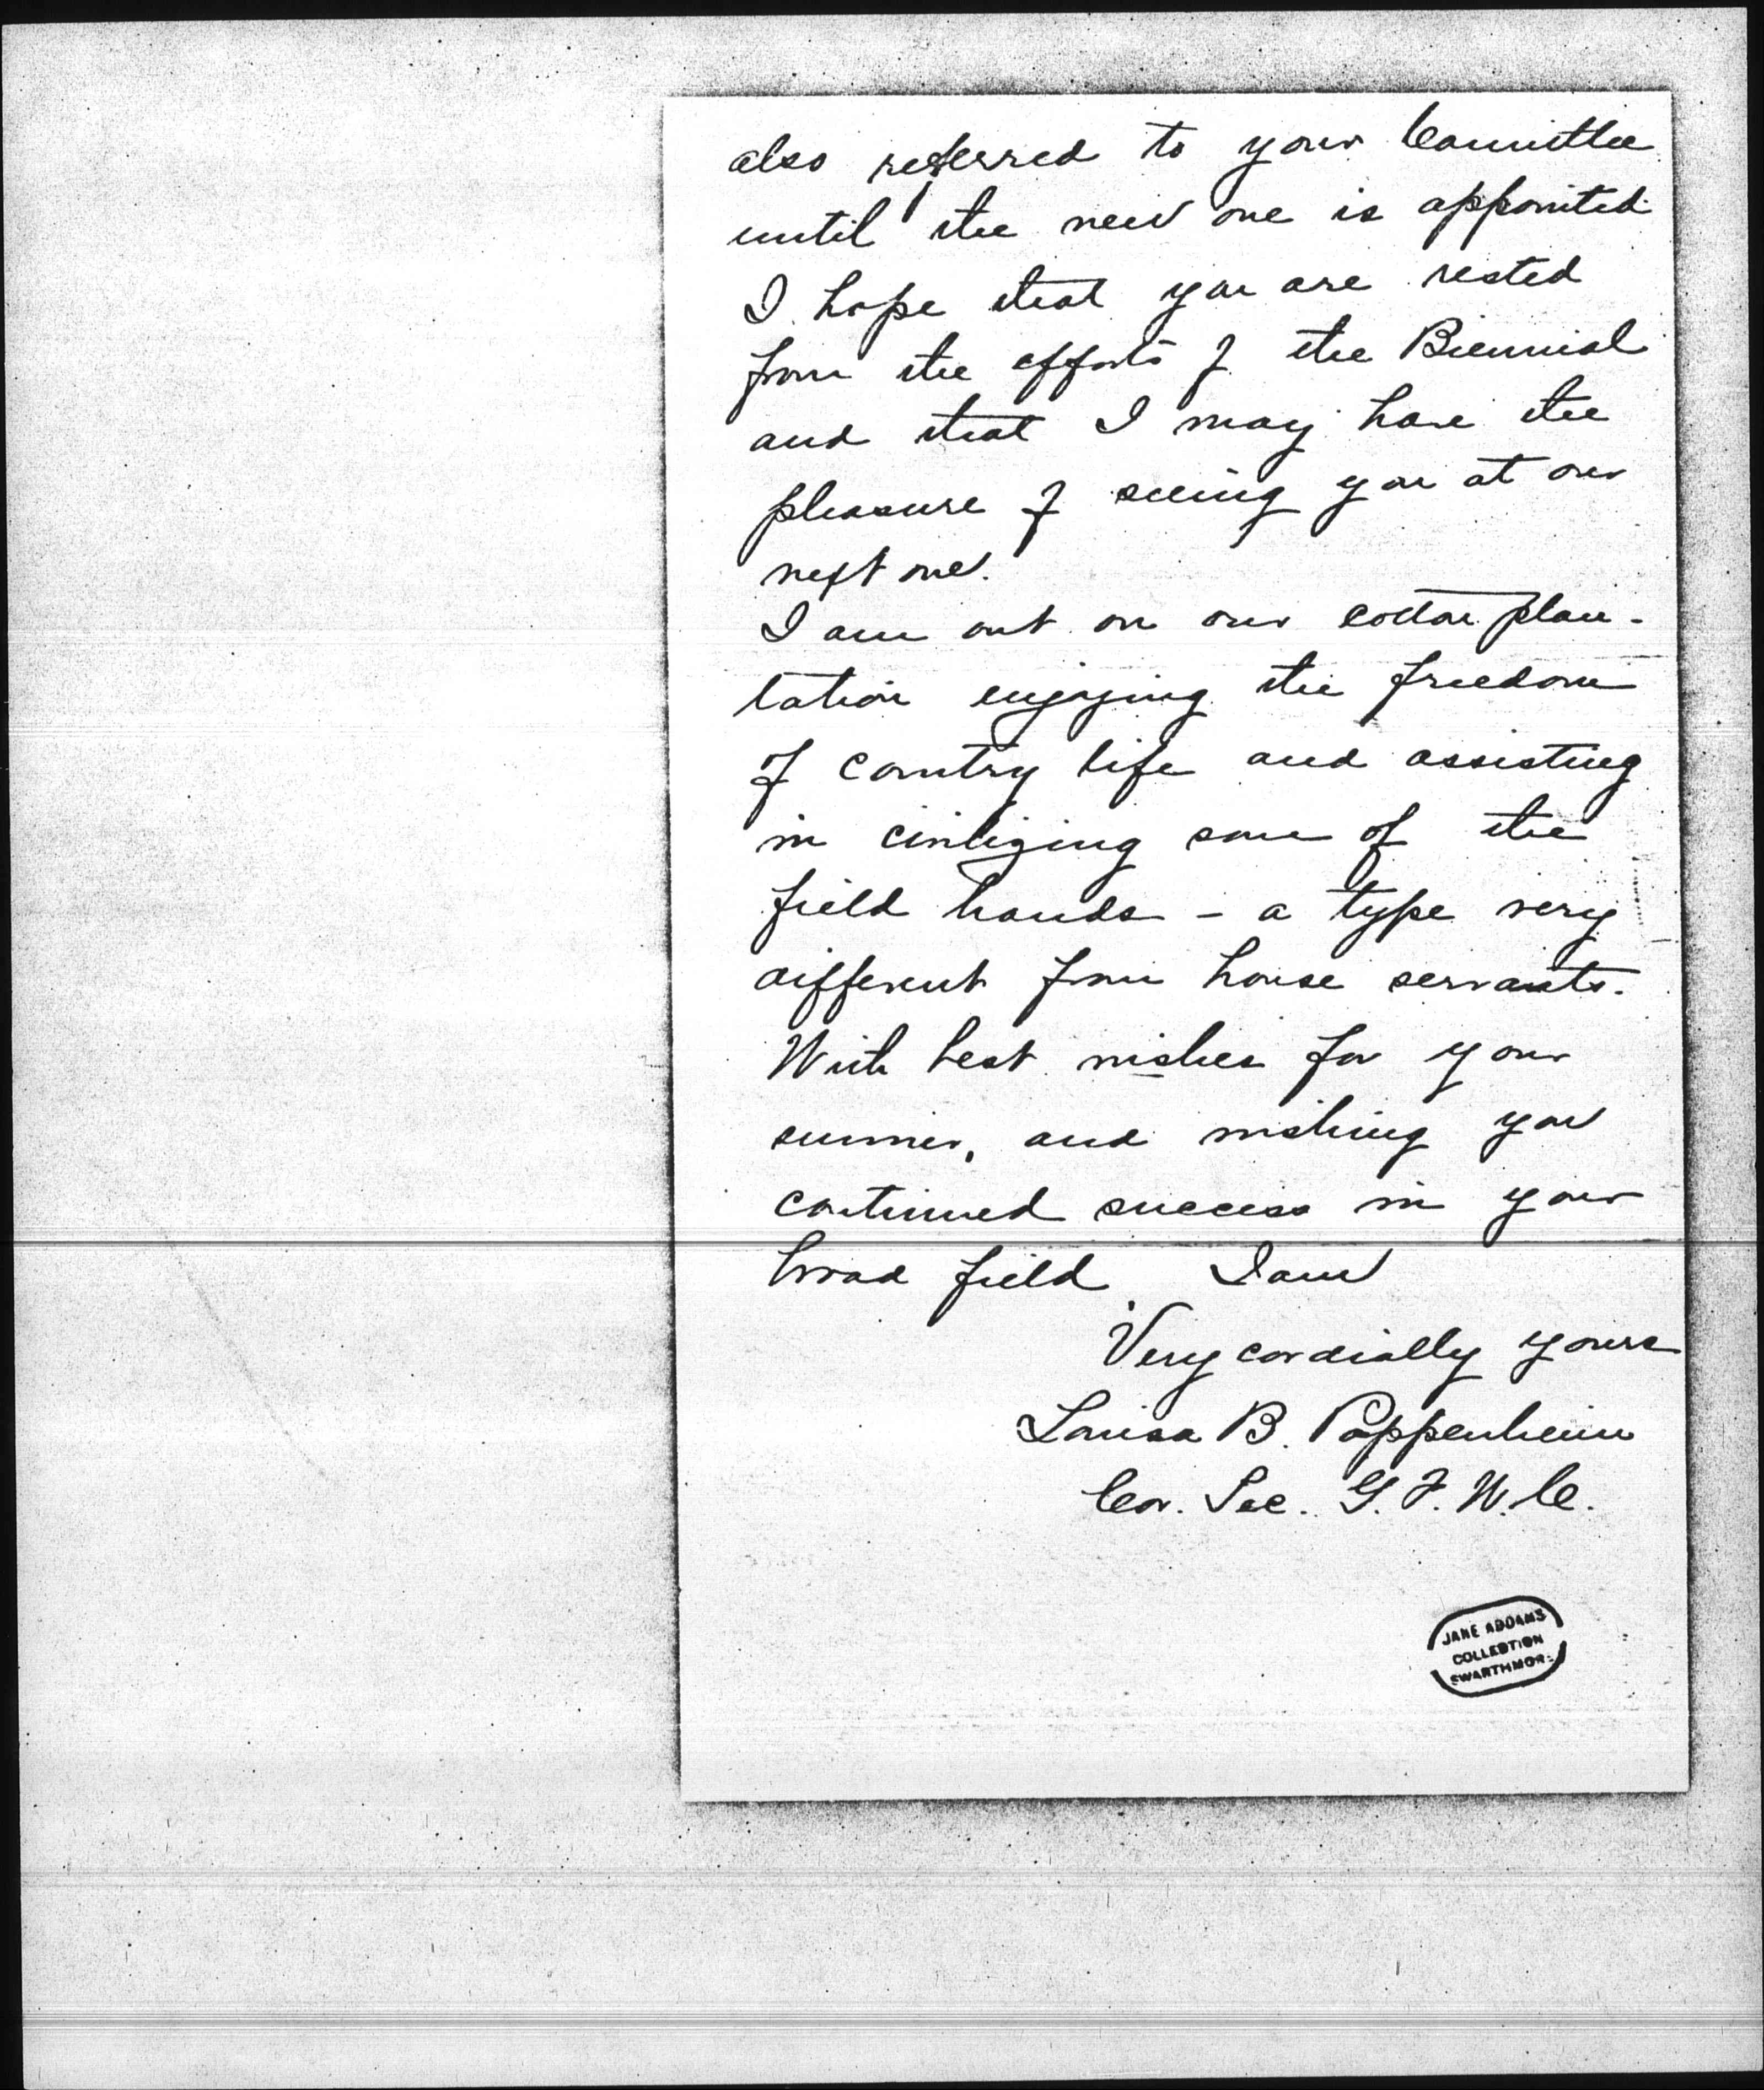 also referred to your Committee
until the new one is appointed.
I hope that you are rested
from the efforts of the Biennial
and that I may have the
pleasure of seeing you at our
next one.
I am out on our cotton plan-
tation enjoying the freedom
of country life and assisting
in civilizing some of the
field hands - a type very
different from house servants.
With best wishes for your
summer, and wishing you
continued success in your
broad field I am
Very cordially yours
Louisa B. Poppenheim
Cor. Sec. G. F. W. C.
JANE ADDAMS
COLLECTION
SWARTHMORE